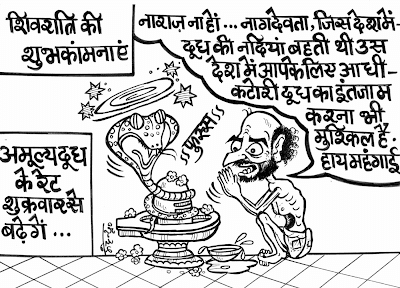 शिवरात्रि की
शुभकामनाएं
नाराज़ ना हों... नागदेवता, जिस देश में-
दूध की नदियां बहती थी उस
देश में आपके लिए आधी-
कटोरी दूध का इंतजाम
करना भी
मुश्किल है-
हाय महंगाई
फुस्स्स
अमूल्य दूध
के रेट
शुक्रवार से
बढ़ेगें ...